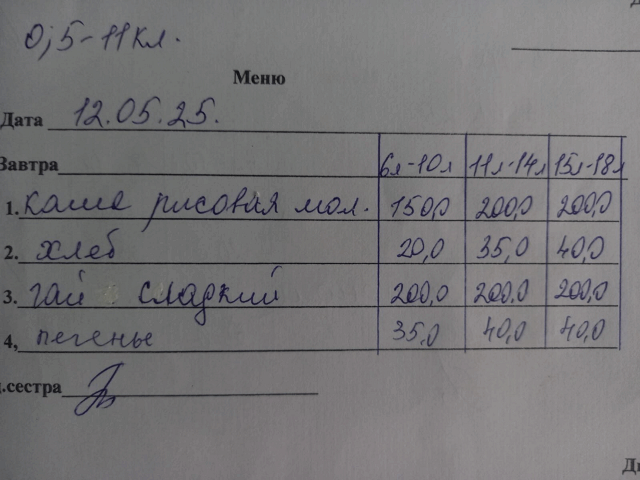 0,5-11 кл.
Меню
Дата 12.05.25.
Завтра 6л-10л 11л-14л 15л-18л
1. каша рисовая мол. 150,0 200,0 200,0
2. хлеб 20,0 35,0 40,0
3. чай сладкий 200,0 200,0 200,0
4, печенье 35,0 40,0 40,0
д.сестра